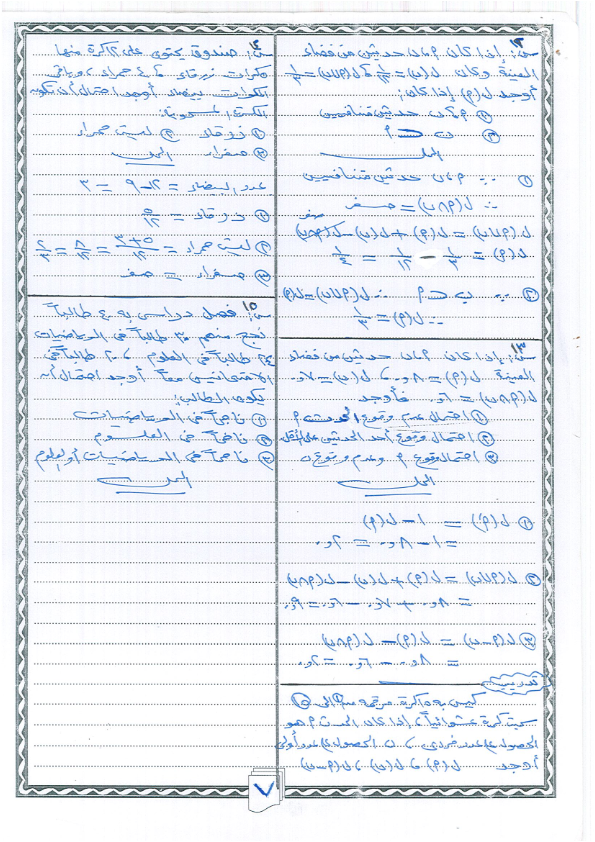 س١٢: إذا كان ٢، ب حدثين من فضاء
العينة وكان ل(ب) = ١/١٢، ل(٢∪ب) = ١/٣
أوجد ل(٢) إذا كان:
① ٢، ب حدثين متنافيين
② ب ⊂ ٢
الحل
① ∵ ٢، ب حدثين متنافيين
∴ ل(٢∩ب) = صفر
ل(٢∪ب) = ل(٢) + ل(ب) − ل(٢∩ب) صفر
ل(٢) = ١/٣ − ١/١٢ = ١/٤
② ∵ ب ⊂ ٢ ∴ ل(٢∪ب) = ل(٢)
∴ ل(٢) = ١/٣
س١٣: إذا كان ٢، ب حدثين من فضاء
العينة ل(٢) = ٠٫٨، ل(ب) = ٠٫٧
ل(٢∩ب) = ٠٫٦ فأوجد
① احتمال عدم وقوع الحدث ٢
② احتمال وقوع أحد الحدثين على الأقل
③ احتمال وقوع ٢ وعدم وقوع ب
الحل
① ل(٢َ) = ١ − ل(٢)
= ١ − ٠٫٨ = ٠٫٢
② ل(٢∪ب) = ل(٢) + ل(ب) − ل(٢∩ب)
= ٠٫٨ + ٠٫٧ − ٠٫٦ = ٠٫٩
③ ل(٢−ب) = ل(٢) − ل(٢∩ب)
= ٠٫٨ − ٠٫٦ = ٠٫٢
تدريب
كيس به كرة مرقمة من الى
سحبت كرة عشوائياً، إذا كان الحدث ٢ هو
الحصول على عدد فردى، ب الحصول على عدد أولى
أوجد ل(٢)، ل(ب)، ل(٢−ب)
س١٤: صندوق يحتوى على ١٢ كرة منها
٥ كرات زرقاء، ٤ حمراء، وباقى
الكرات بيضاء أوجد احتمال أن تكون
الكرة المسحوبة:
① زرقاء ② ليست حمراء
③ صفراء الحل
عدد البيضاء = ١٢ − ٩ = ٣
① زرقاء = ٥/١٢
② ليست حمراء = (٥+٣)/١٢ = ٨/١٢ = ٢/٣
③ صفراء = صفر
س١٥: فصل دراسى به ٤٠ طالباً
نجح منهم ٣٠ طالباً فى الرياضيات
٢٤ طالباً فى العلوم، ٢٠ طالباً فى
الامتحانين معاً أوجد احتمال أن
يكون الطالب:
① ناجحاً فى الرياضيات
② ناجحاً فى العلوم
③ ناجحاً فى الرياضيات أو العلوم
الحل
٧